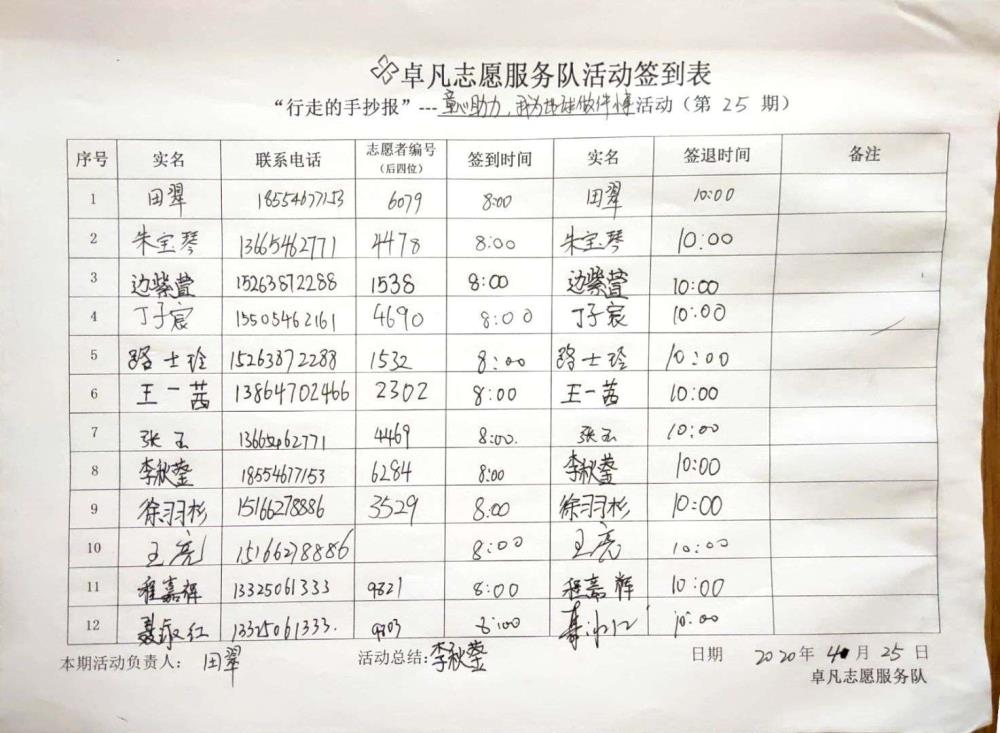 卓凡志愿服务队活动签到表
“行走的手抄报”---童心助力,我为地球做件事活动(第 25 期)
序号 实名 联系电话 志愿者编号(后四位) 签到时间 实名 签退时间 备注
1 田翠 18554677153 6079 8:00 田翠 10:00
2 朱宝琴 13665462771 4478 8:00 朱宝琴 10:00
3 边紫萱 15263872288 1538 8:00 边紫萱 10:00
4 丁子宸 15505462161 4690 8:00 丁子宸 10:00
5 路士玲 15263872288 1532 8:00 路士玲 10:00
6 王一茜 13864702466 2302 8:00 王一茜 10:00
7 张玉 13665462771 4469 8:00. 张玉 10:00
8 李秋蓥 18554677153 6284 8:00 李秋蓥 10:00
9 徐羽杉 15166278886 3529 8:00 徐羽杉 10:00
10 王亮 15166278886 8:00 王亮 10:00
11 程嘉辉 13325061333 9821 8:00 程嘉辉 10:00
12 聂永红 13325061333. 8:00 10:00
本期活动负责人: 田翠 活动总结:李秋蓥 日期 2020年 4月 25日
卓凡志愿服务队